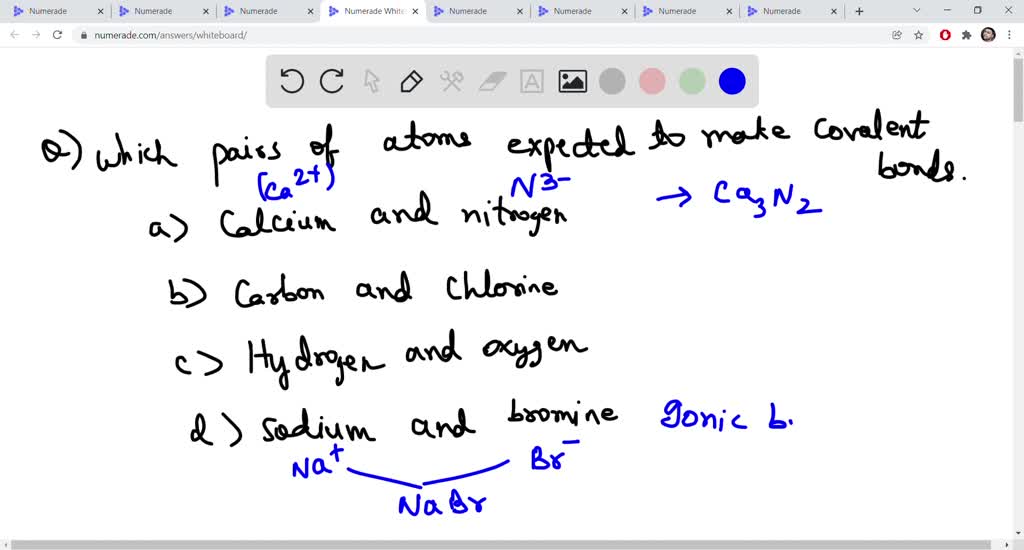 Numerade Numerade Numerade Numerade White Numerade Numerade Numerade Numerade
numerade.com/answers/whiteboard/
A
Q) which pairs of atoms expected to make covalent
bonds.
(Ca²⁺) N³⁻ → Ca₃N₂
a) Calcium and nitrogen
b) Carbon and Chlorine
c) Hydrogen and oxygen
d) sodium and bromine Ionic b.
Na⁺ Br⁻
NaBr